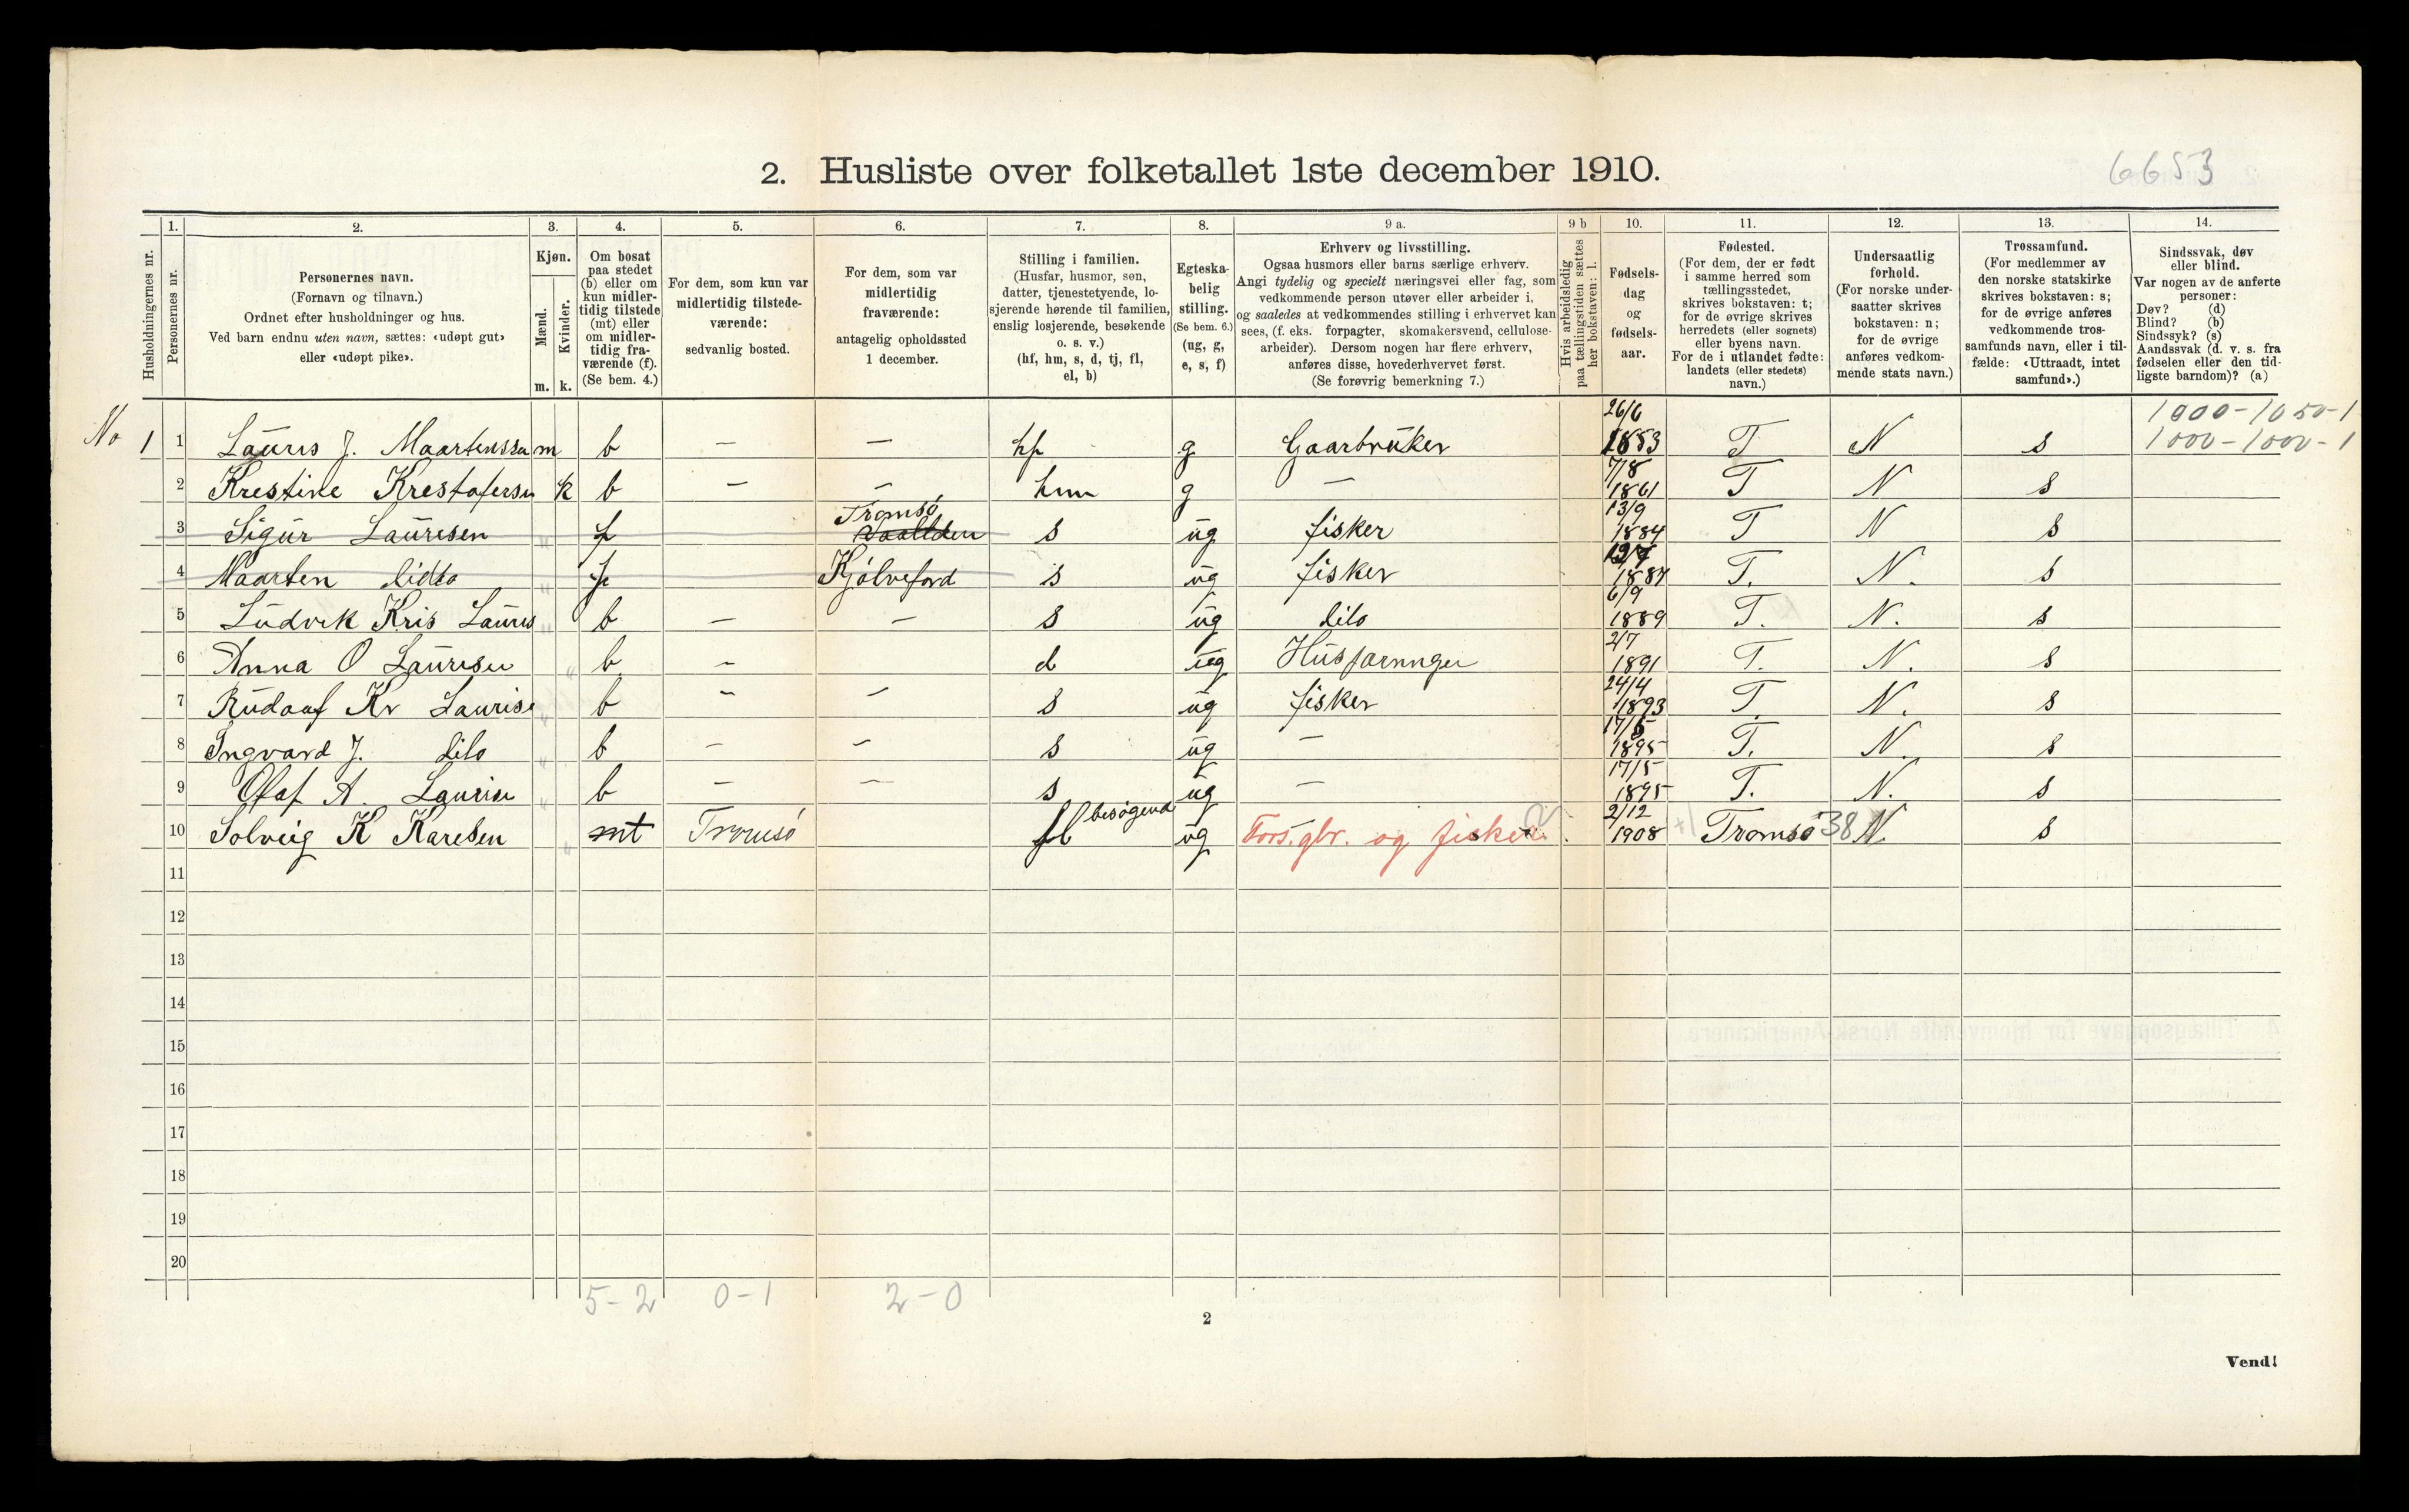 6653
2. Husliste over folketallet 1ste december 1910.
1. 2. 3. 4. 5. 6. 7. 8. 9 a. 9 b 10. 11. 12. 13. 14.
Husholdningernes nr.
Personernes nr.
Personernes navn.
(Fornavn og tilnavn.)
Ordnet efter husholdninger og hus.
Ved barn endnu uten navn, sættes: «udøpt gut»
eller «udøpt pike».
Kjøn.
Mænd.
Kvinder.
m. k.
Om bosat
paa stedet
(b) eller om
kun midler-
tidig tilstede
(mt) eller
om midler-
tidig fra-
værende (f).
(Se bem. 4.)
For dem, som kun var
midlertidig tilstede-
værende:
sedvanlig bosted.
For dem, som var
midlertidig
fraværende:
antagelig opholdssted
1 december.
Stilling i familien.
(Husfar, husmor, søn,
datter, tjenestetyende, lo-
sjerende hørende til familien,
enslig losjerende, besøkende
o. s. v.)
(hf, hm, s, d, tj, fl,
el, b)
Egteska-
belig
stilling.
(Se bem. 6.)
(ug, g,
e, s, f)
Erhverv og livsstilling.
Ogsaa husmors eller barns særlige erhverv.
Angi tydelig og specielt næringsvei eller fag, som
vedkommende person utøver eller arbeider i,
og saaledes at vedkommendes stilling i erhvervet kan
sees, (f. eks. forpagter, skomakersvend, cellulose-
arbeider). Dersom nogen har flere erhverv,
anføres disse, hovederhvervet først.
(Se forøvrig bemerkning 7.)
Hvis arbeidsledig
paa tællingstiden sættes
her bokstaven: l.
Fødsels-
dag
og
fødsels-
aar.
Fødested.
(For dem, der er født
i samme herred som
tællingsstedet,
skrives bokstaven: t;
for de øvrige skrives
herredets (eller sognets)
eller byens navn.
For de i utlandet fødte:
landets (eller stedets)
navn.)
Undersaatlig
forhold.
(For norske under-
saatter skrives
bokstaven: n;
for de øvrige
anføres vedkom-
mende stats navn.)
Trossamfund.
(For medlemmer av
den norske statskirke
skrives bokstaven: s;
for de øvrige anføres
vedkommende tros-
samfunds navn, eller i til-
fælde: «Uttraadt, intet
samfund».)
Sindssvak, døv
eller blind.
Var nogen av de anførte
personer:
Døv? (d)
Blind? (b)
Sindssyk? (s)
Aandssvak (d. v. s. fra
fødselen eller den tid-
ligste barndom)? (a)
1900-1050-1
1000-1000-1
No 1 1 Lauris J. Maartenssen m b — — hf g Gaarbruker 26/6 1853 T N s
2 Krestine Krestofersen k b — — hm g — 7/8 1861 T N s
3 Sigur Laurisen " f Tromsø s ug fisker 13/9 1884 T N s
4 Maarten ditto " f Kjølveford s ug fisker 1887 T. N. s
5 Ludvik Kris Lauris " b — — s ug dito 6/9 1889 T. N. s
6 Anna O Laurisen " b — d ug 2/7 1891 T. N. s
7 Rudoaf Kr Laurise " b — — s ug fisker 24/4 1893 T N. s
8 Ingvard J. dito " b — — s ug — 1895 T. N. s
9 Olaf A. Laurisen " b — — s ug — 17/5 1895 T. N. s
10 Solveig K Karelsen " mt Tromsø fl besøgend ug Fors. gbr. og fisker. 2/12 1908 Tromsø 38 N. s
11
12
13
14
15
16
17
18
19
20
5-2 0-1 2-0
2
Vend!